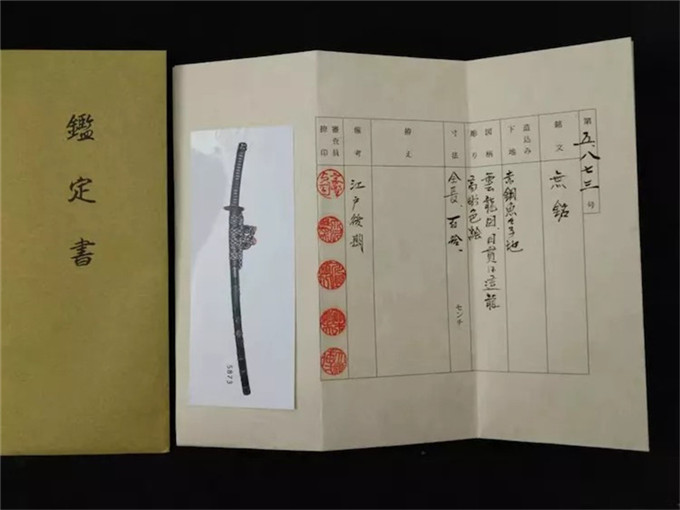 鑑定書
第五八七三号
銘文
無銘
造込み
下地
赤銅魚々子地
図柄
彫り
雲龍図、目貫は這龍
高彫色絵
寸法
全長、百拾、センチ
拵え
備考
江戸後期
審査員
押印
5873